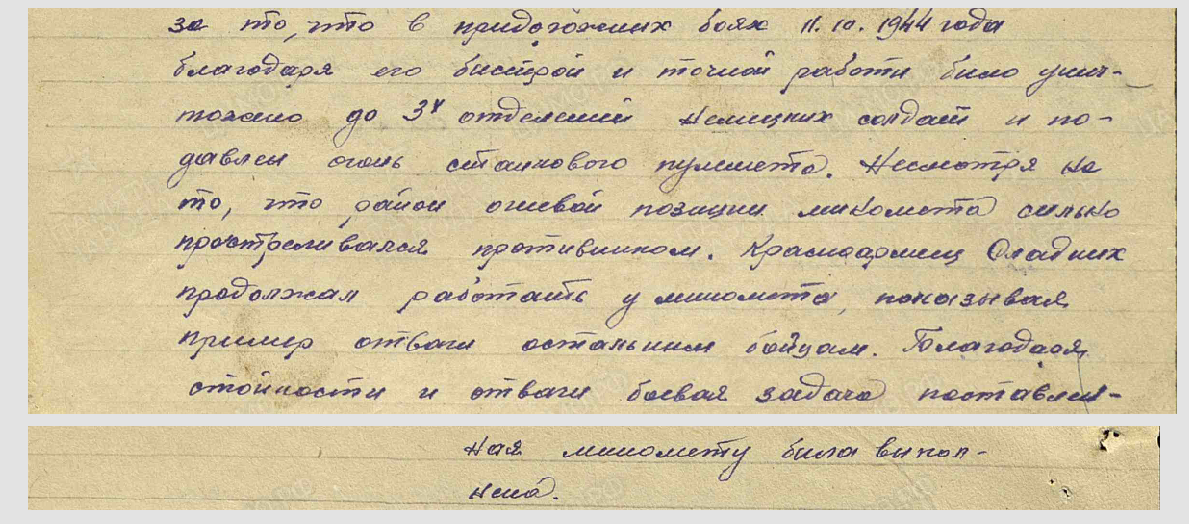 за то, что в придорожных боях 11.10.1944 года
благодаря его быстрой и точной работы было унич-
тожено до 3х отделений немецких солдат и по-
давлен огонь станкового пулемета. Несмотря на
то, что район огневой позиции миномета сильно
простреливался противником. Красноармеец Оладних
продолжал работать у миномета, показывая
пример отваги остальным бойцам. Благодаря
стойкости и отваги боевая задача поставлен-
ная миномету была выпол-
нена.